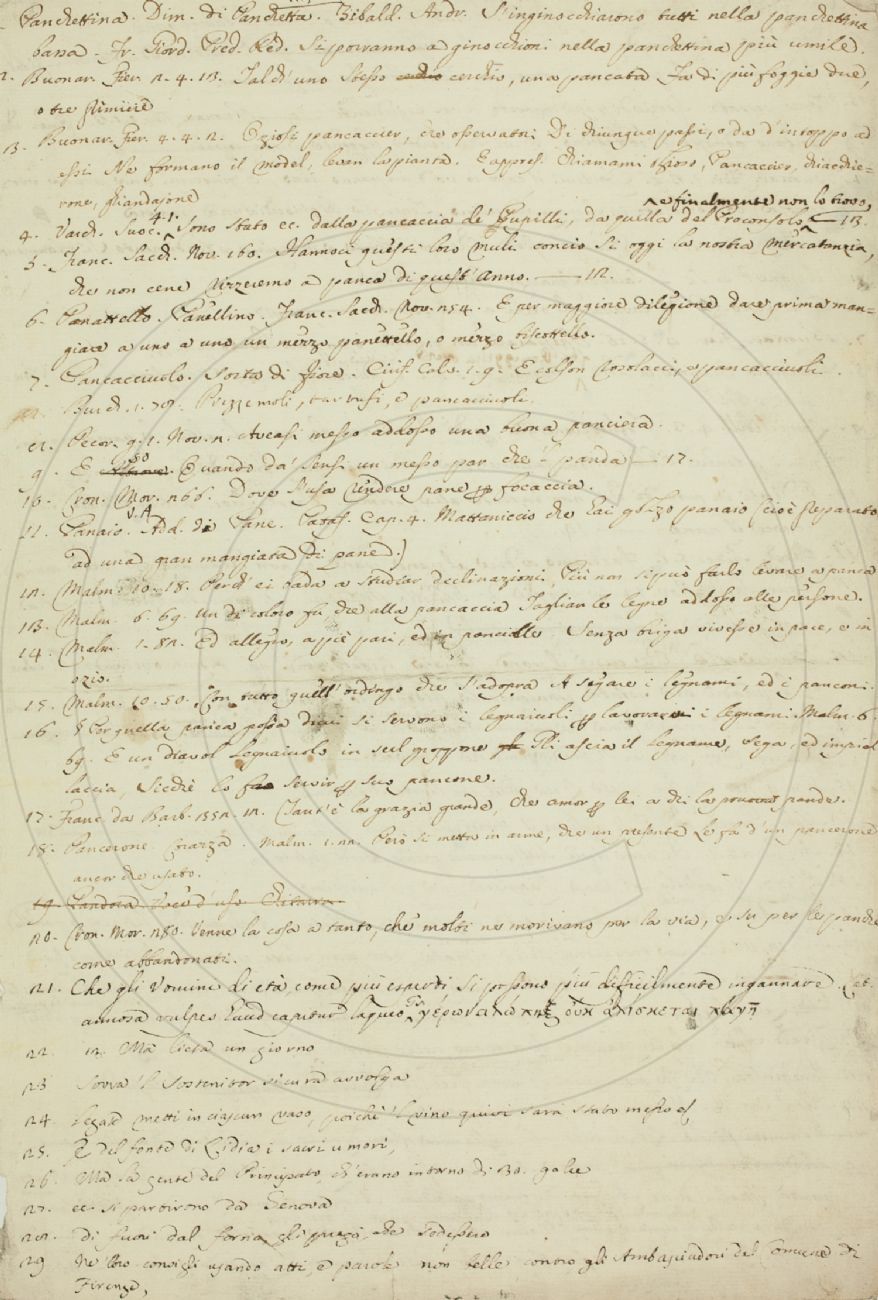 Panchettina. Dim. di Panchetta. Bibald. Andr. S'inginocchiarono tutti nella panchettina
bassa. Fr. Giord. Pred. Red. Si porranno a ginocchioni nella panchettina più umile.
2. Buonar. Fier. 2. 4. 13. Talch' uno stesso cerchio, una pancata Fa di più foggie due,
o tre
3. Buonar. Fier. 4. 4. 2. Oziosi pancaccier, che osservatori Di chiunque passi, o da d'intoppo ad
essi Ne formano il model, levan la pianta. E appress. Chiamami ozioso, Pancaccier, chiacchie=
rone,
4. Varch. Suoc. 4. 1. Sono stato ec. dalla pancaccia de' Pupilli, da quella del Proconsolo ^e finalmente non lo trovo, — 13.
5. Franc. Sacch. Nov. 160. Hannoci questi loro muli concio sì oggi la nostra mercatanzia,
che non cene rizzeremo a panca di quest' anno. — 12.
6. Panattello. Panellino. Franc. Sacch. Nov. 254. E per maggiore dilegione dare prima man=
giare a uno a uno un mezzo panettello, o mezzo biscottello.
7. Pancacciuolo. Sorta di fiore. Ciriff. Calv. 1. 9. E colson rosolacci, e pancacciuoli.
Burch. 1. 39. Prezzemoli, tartufi, e pancacciuoli.
Pecor. g. 1. Nov. 2. Aveasi messo addosso una buona panciera.
9. E 80. Quando da' sensi un messo par che 'l panda — 17.
10. Cron. Mor. 266. Dove s'usa rendere pane per focaccia.
11. Panaio. V. A. Add. di Pane. Pataff. Cap. 4. Mattaniccio che hai gozzo panaio (cioè preparato
ad una gran mangiata di pane.)
12. Malm. 10. 18. Perch' ei bada a studiar declinazioni, Più non si può farlo levare a panca
13. Malm. 6. 69. Un di coloro fu che alla pancaccia Taglian le legne addosso alle persone.
14. Malm. 1. 82. Ed allegro, a piè pari, ed in panciolle Senza briga vivesse in pace, e in
ozio.
15. Malm. 10. 50. Con tutto quell' ordingo che s'adopra A segare i legnami, ed i panconi.
16. Per quella panca sopra di cui si servono i legnaiuoli per lavorare i legnami. Malm. 6.
69. E un diavol legnaiuolo in sul groppone Gli ascia il legname, sega, ed impial
laccia, Sicchè lo fa servir per suo pancone.
17. Franc. da Barb. 352. 12. Tant' è la grazia grande, che amor per lei a chi la prova pande.
18. Pancerone. Corazza. Malm. 1. 22. Però si metta in arme, che un presente Le fa d'un pancerone
ancorchè usato.
19. Pandora. Voce d'uso. Chitarra
20. Cron. Mor. 280. Venne la cosa a tanto, che molti ne morivano per la via, e su per le panche
come abbandonati.
21. Che gli Uomini di età, come più esperti si possono più difficilmente ingannare. Lat.
annosa vulpes haud capitur laqueo. Gr. γέρων ἀλώπηξ οὐχ ἁλίσκεται πάγῃ
22. Ma lieta un giorno
23 Sovra 'l sostenitor sicura avvolga
24. Legale metti in ciascun vaso, poichè 'l vino quivi sarà stato messo
25. E del fonte di Lidia i sacri umori,
26. Ma la gente del Principato, ch'erano intorno di 30. galee
27. ec. si partirono da Genova
28. di fuori dal
29 Ne' loro consigli usando atti, e parole non belle contro gli Ambasciadori del Comune di
Firenze,